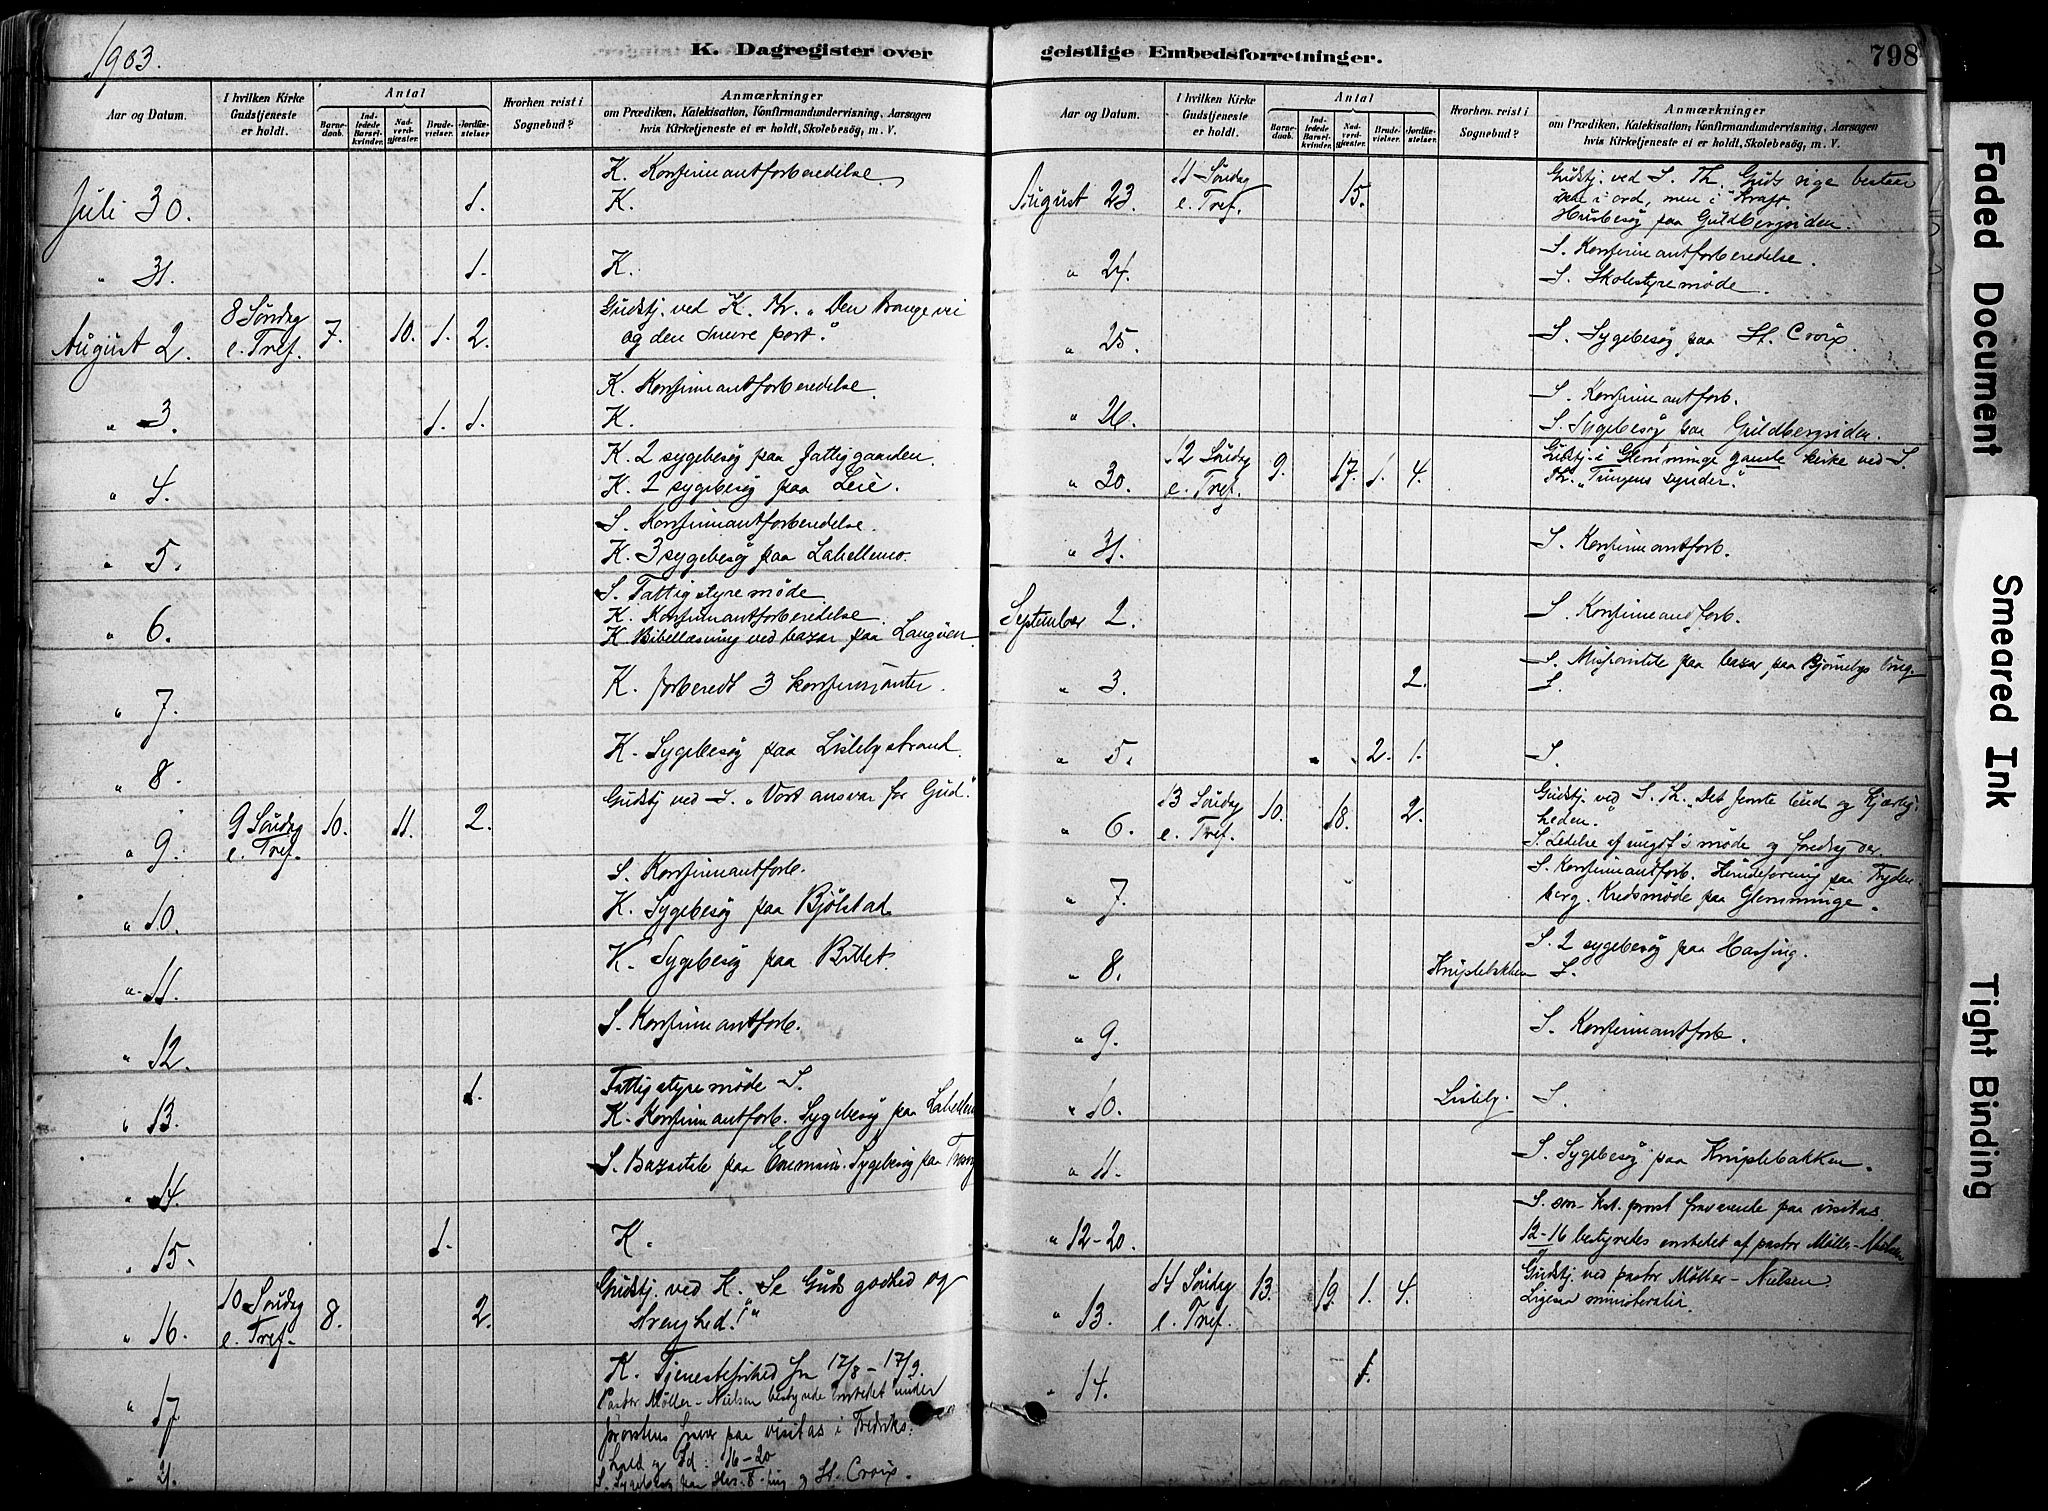 1903.
K. Dagregister over
Aar og Datum.
I hvilken Kirke Gudstjeneste er holdt.
Antal
Barnedaab.
Indledede Barselkvinder.
Nadverdgjester.
Brudevielser.
Jordfæstelser
Hvorhen reist i Sognebud?
Anmærkninger
om Prædiken, Katekisation, Konfirmandundervisning, Aarsagen
hvis Kirketjeneste ei er holdt, Skolebesög, m. V.
K. Konfirmantforberedelse.
Juli 30. 1. K.
" 31. 1. K.
August 2. 8 Søndag e. Tref. 7. 10. 1. 2. Gudstj. ved K. Thr. "Den trange vei
og den snevre port."
K. Konfirmantforberedelse.
" 3. 1. 1. K.
K. 2 sygebesøg paa fattiggaarden.
" 4. K. 2 sygebesøg paa Leie.
S. Konfirmantforberedelse.
" 5. K. 3 sygebesøg paa Labellemo.
S. Fattigstyremøde
K. Konfirmantforberedelse.
" 6. K Bibellæsning ved bazar paa
" 7. K. forberedt 3 konfirmanter.
" 8. K. Sygebesøg paa Lislebystrand.
" 9. 9 Søndag e. Tref. 10. 11. 2. Gudstj ved S. "Vort ansvar for Gud."
S. Konfirmantforb.
" 10. K. Sygebesøg paa Bjølstad.
" 11. K. Sygebesøg paa
" 12. S. Konfirmantforb.
" 13. 1. Fattigstyremøde S.
K. Konfirmantforb. Sygebesøg paa
" 14. S. Bazartale paa Sygebesøg paa
" 15. 1. K.
" 16. 10 Søndag e. Tref. 8. 2. Gudstj. ved K. "Se Guds godhed og
strenghed!"
" 17 K. Tjenestefrihed fra 17/8 – 17/9.
Pastor Møller-Nielsen bestyrede embedet under
paa visitas i Fredriks-
hald og Id: 16-20
" 21. S. Sygebesøg paa og St. Croix.
geistlige Embedsforretninger.
798
Aar og Datum.
I hvilken Kirke Gudstjeneste er holdt.
Antal
Barnedaab.
Indledede Barselkvinder.
Nadverdgjester.
Brudevielser.
Jordfæstelser.
Hvorhen reist i Sognebud?
Anmærkninger
om Prædiken, Katekisation, Konfirmandundervisning, Aarsagen
hvis Kirketjeneste ei er holdt, Skolebesög, m. V.
August 23. 11 Søndag e. Tref. 15. Gudstj. ved S. Th. Guds rige bestaar
ikke i ord, men i kraft.
Husbesøg paa Guldbergsiden.
" 24. S. Konfirmantforberedelse.
S. Skolestyremøde.
" 25. S. Sygebesøg paa St. Croix.
" 26. S. Konfirmantforb.
S. Sygebesøg paa Guldbergsiden.
" 30. 12 Søndag e. Tref. 9. 17. 1. 4. Gudstj. i Glemminge gamle kirke ved S.
Thr. "Tungens synder."
" 31. S. Konfirmantforb.
September 2. S. Konfirmandforb.
" 3. 2. S. paa bazar paa Bjørnebys brug.
S.
" 5. 2. 1. S.
" 6. 13 Søndag e. Tref. 10. 18. 2. Gudstj. ved S. Th. "Det første bud og kjærlig-
heden."
S. Ledelse af møde og foredrag der.
" 7. S. Konfirmantforb.
berg. Kredsmøde paa Glemminge.
" 8. Kniplebakken S. 2 sygebesøg paa
S.
" 9. S. Konfirmantforb.
" 10. Lisleby. S.
" 11. S. Sygebesøg paa Kniplebakken.
" 12-20. S. som Kst. prost fraværende paa visitas.
12-16 bestyredes embedet af pastor Møller-Nielsen
" 13. 14 Søndag e. Tref. 13. 19. 1. 4. Gudstj. ved pastor Møller-Nielsen.
Ligesaa ministerialia.
" 14. 1.
Faded Document
Smeared Ink
Tight Binding